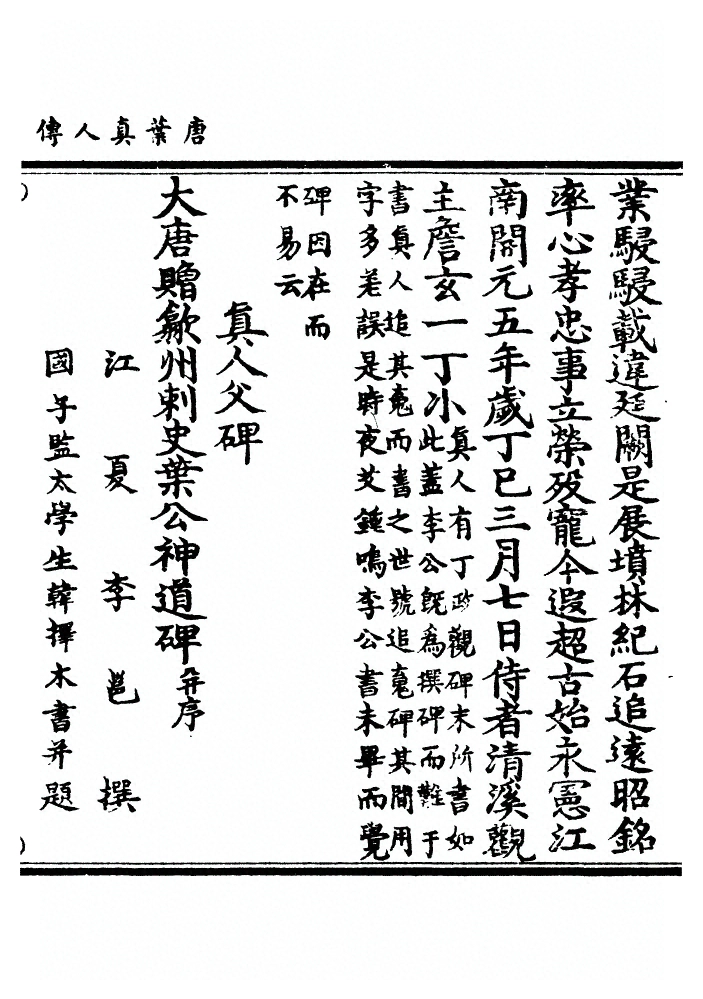 唐葉真人傳
業駸駸載違廷闕是展墳林紀石追遠昭銘
率心孝忠事立榮歿寵今遐超古始永憲江
南開元五年歲丁巳三月七日侍者清溪觀
主詹玄一丁小真人有丁政觀碑末所書如
此蓋李公既為撰碑而難于
書真人追其䰟而書之世號追䰟碑其間用
字多差誤是時夜艾鍾鳴李公書未畢而覺
碑因在而
不易云
真人父碑
大唐贈歙州刺史葉公神道碑并序
江夏李邕撰
國子監太學生韓擇木書并題